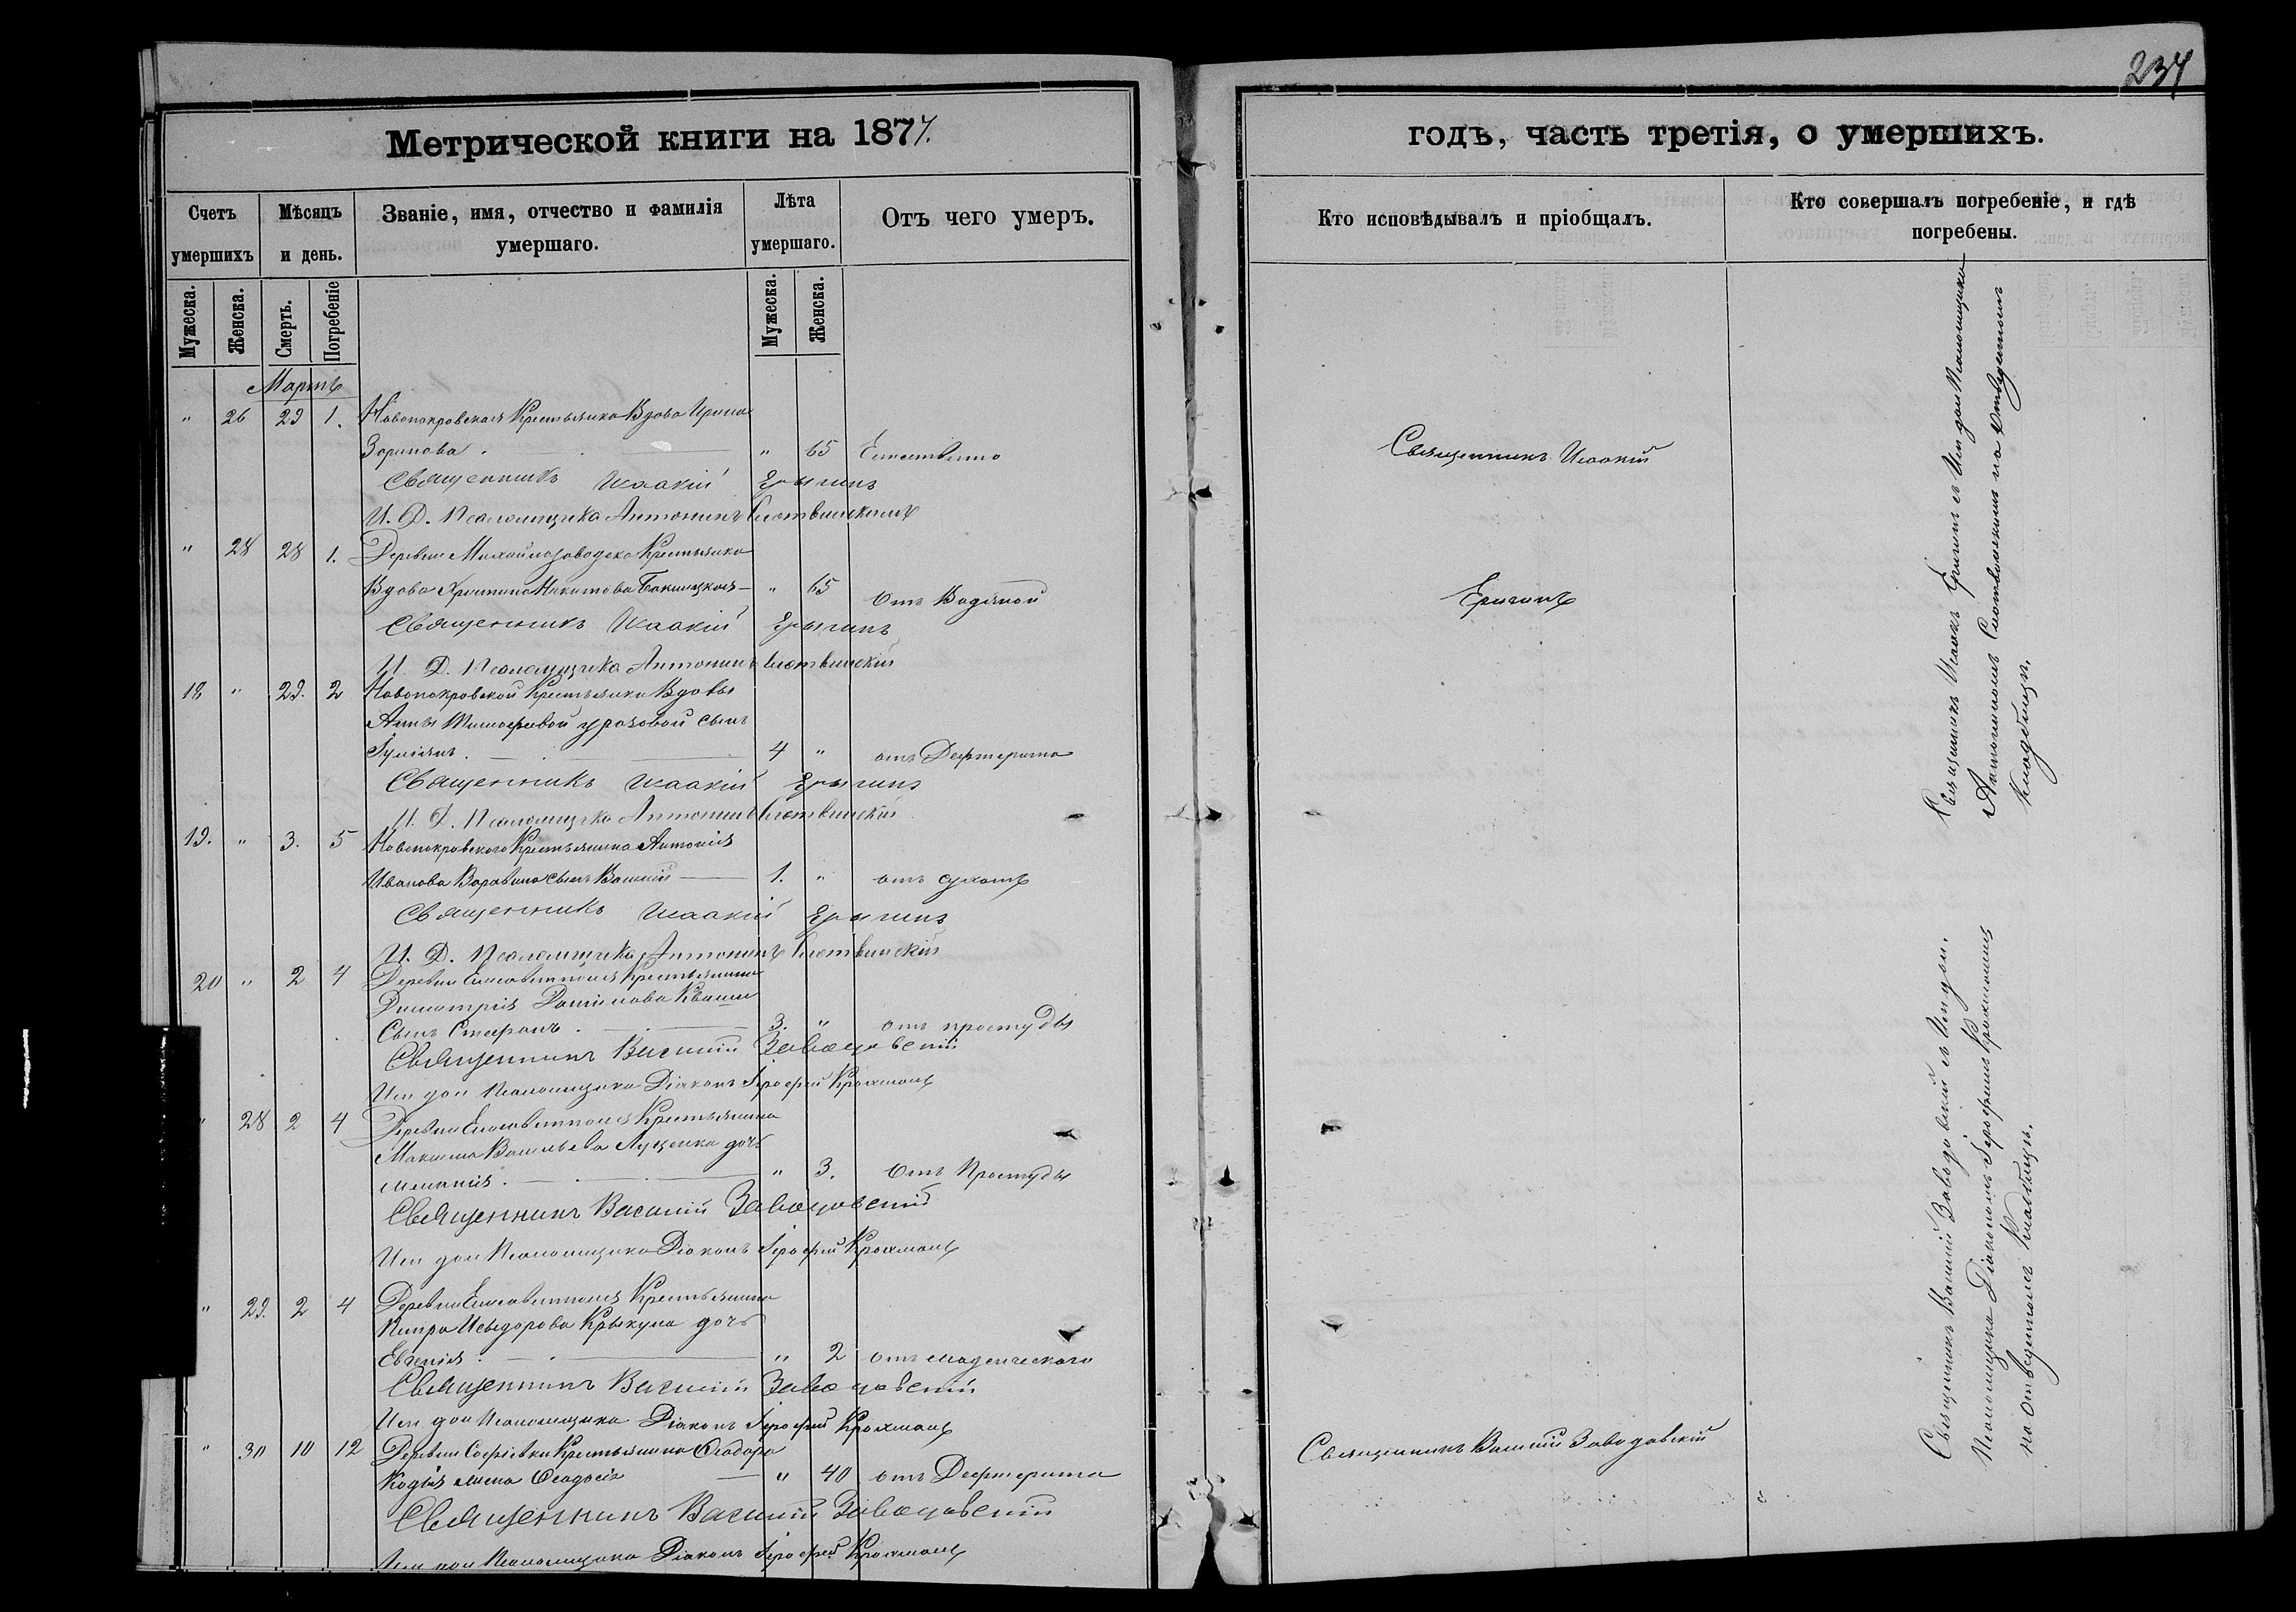 234
Метрической книги на 1877.
годъ, часть третія, о умершихъ.
Счетъ умершихъ
Мѣсяцъ и день.
Званіе, имя, отчество и фамилія умершаго.
Лѣта умершаго.
Отъ чего умеръ.
Кто исповѣдывалъ и пріобщалъ.
Кто совершалъ погребеніе, и гдѣ погребены.
Мужеска.
Женска.
Смерть.
Погребеніе
Мужеска.
Женска.
Мартъ
" 26 29 1. Новопокровская Крестьянка Вдова Ирина
Зорикова " 65 Естественно
Священникъ Исаакій Ерыгинъ
И. Д. Псаломщика Антонинъ Слотвинскій
" 28 28 1. Деревни Михайлозаводска Крестьянка
Вдова Христина Никитова " 65 Отъ Водяной
Священникъ Исаакій Ерыгинъ
И. Д. Псаломщика Антонинъ Слотвинскій
18 " 29. 2 Новопокровской Крестьянки Вдовы
Анны Тимофеевой сынъ
Іуліанъ 4 " отъ Дефтерита
Священникъ Исаакій Ерыгинъ
И. Д. Псаломщика Антонинъ Слотвинскій
19. " 3. 5 Новопокровского Крестьянина Антонія
Иванова сынъ Василій 1. " отъ сухотъ
Священникъ Исаакій Ерыгинъ
И. Д. Псаломщика Антонинъ Слотвинскій
20 " 2 4 Деревни Крестьянина
Димитрія Данілова Кваши
Сынъ Стефанъ 3. " отъ простуды
Священникъ Василій Заводовскій
Исп дол Псаломщика Діаконъ Іерофей
" 28 2 4 Деревни Крестьянина
Максима Васильева Луценка дочь
Меланія " 3. Отъ Простуды
Священникъ Василій Заводовскій
Исп дол Псаломщика Діаконъ Іерофей
" 29. 2 4 Деревни Крестьянина
Кипра Исидорова Крыкуна дочь
Евгенія " 2 отъ младенческого
Священникъ Василій Заводовскій
Исп дол Псаломщика Діаконъ Іерофей
" 30 10 12 Деревни Софіевки Крестьянина Феодора
Кодія жена Феодосія " 40 отъ Дефтерита
Священникъ Василій Заводовскій
Исп дол Псаломщика Діаконъ Іерофей
Священникъ Исаакій
Ерыгинъ
Священникъ Василій Заводовскій
Священникъ Исаакъ Ерыгинъ съ Исп дол Псаломщика
Антониномъ Слотвинскимъ на Отведенномъ
кладбищѣ.
Священникъ Василій Заводовскій съ Исп дол.
Псаломщика Діакономъ Іерофеемъ
на отведенномъ Кладбищѣ.